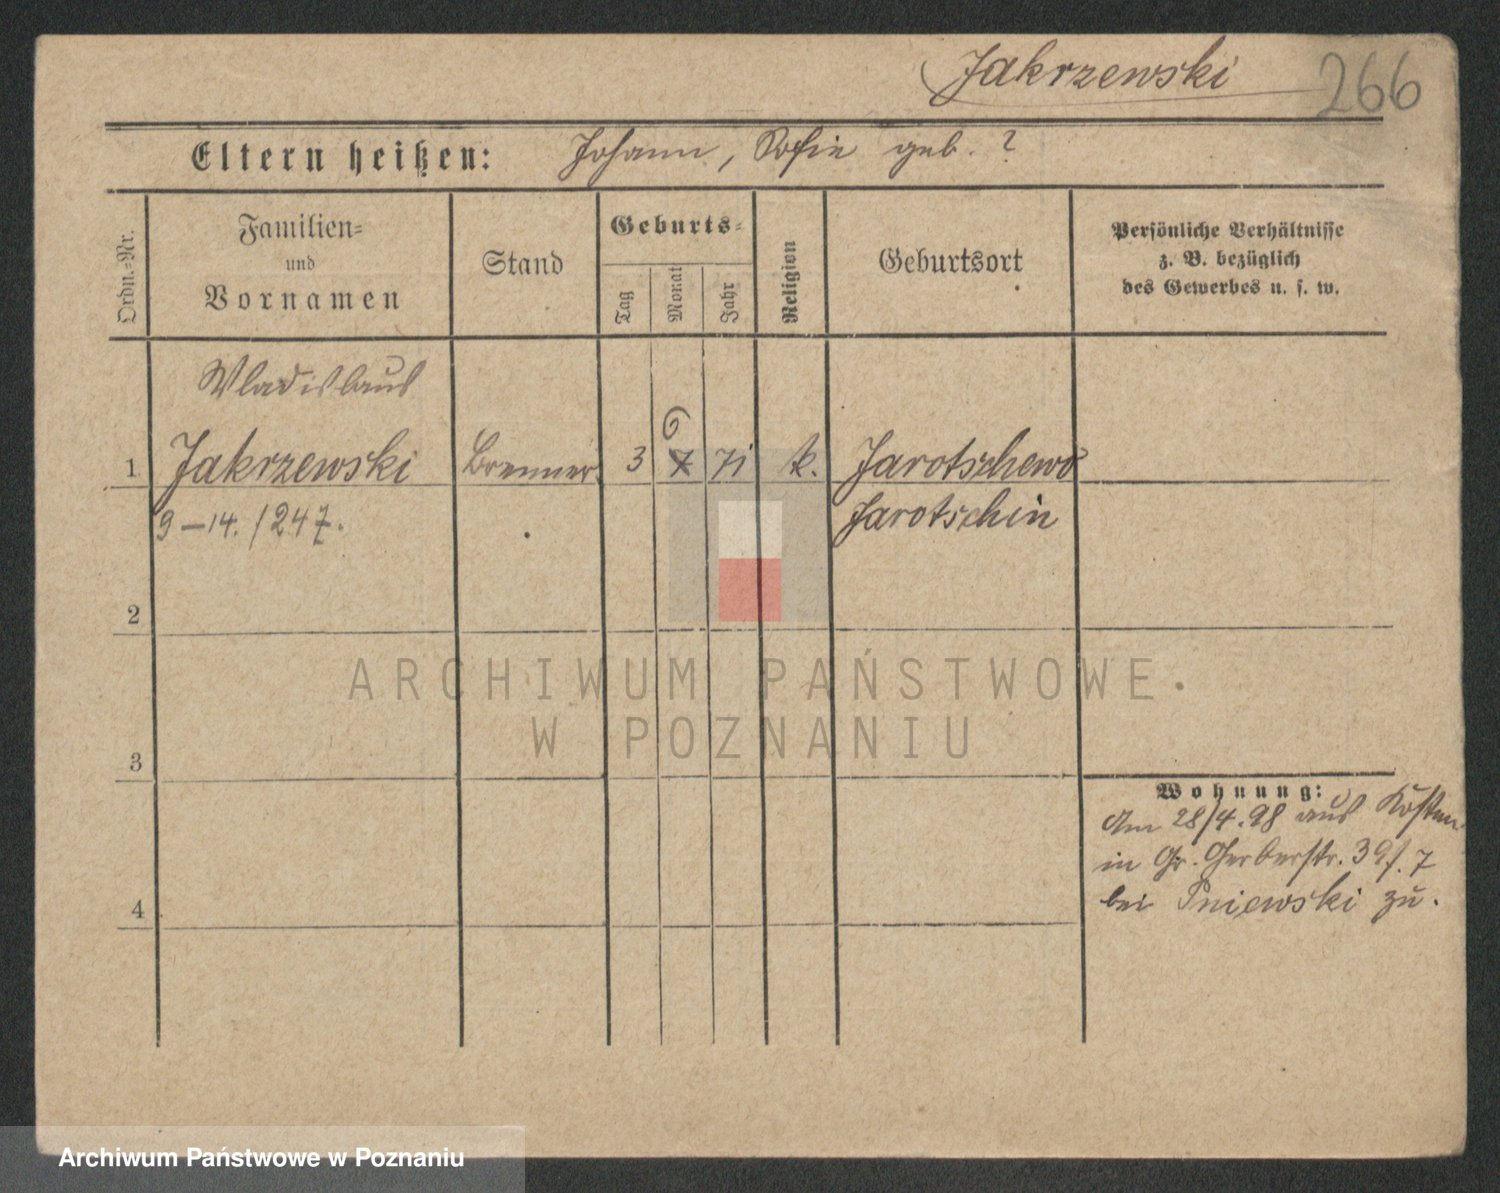 Jakrzewski 266
Eltern heißen: Johann, Sofie geb. ?
Ordn.-Nr.
Familien-
und
Vornamen
Stand
Geburts-
Tag
Monat
Jahr
Religion
Geburtsort
Persönliche Verhältnisse
z. B. bezüglich
des Gewerbes u. s. w.
Wladislaus
6
1 Jakrzewski Brenner 3 7 71 k. Jarotschewo
9-14./247. Jarotschin
2
ARCHIWUM PAŃSTWOWE
W POZNANIU
3
Wohnung:
Am 28/4.98 aus Kosten
in Gr. Gerberstr. 39/. 7
bei Pniewski zu.
4
Archiwum Państwowe w Poznaniu